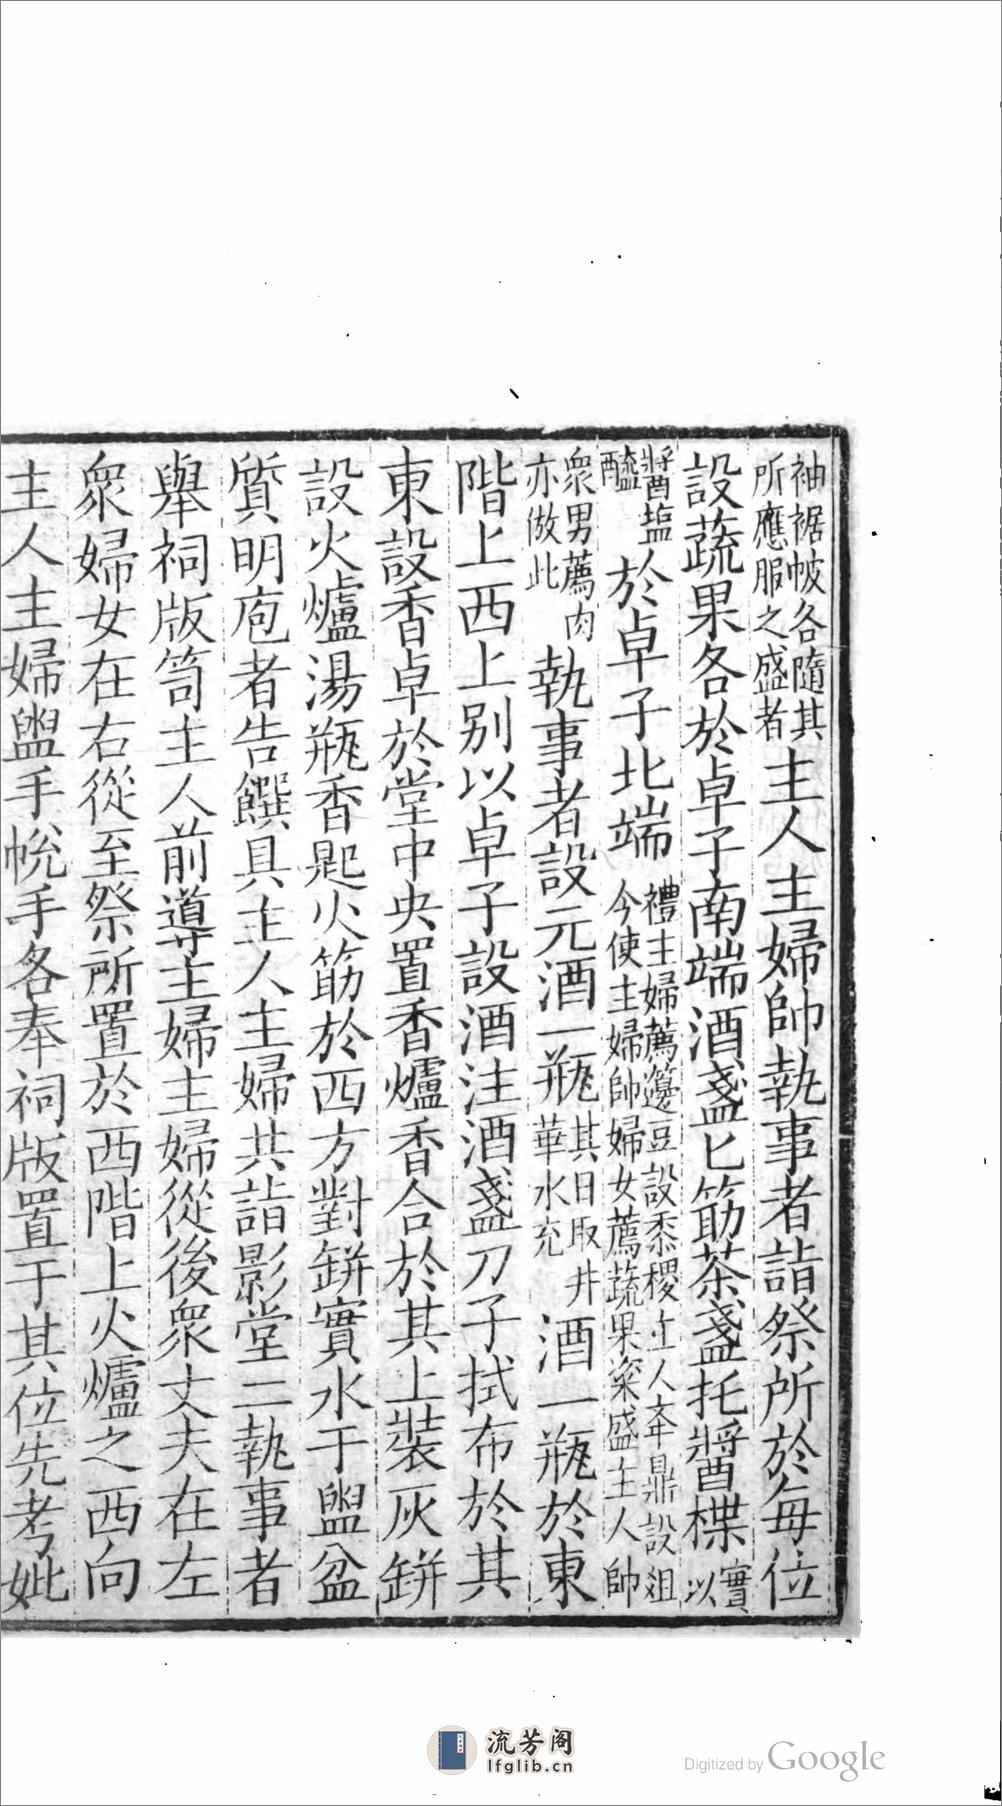 袖裾帔各隨其所應服之盛者主人主婦帥執事者詣祭所於每位
設蔬果各於卓子南端酒盞匕筯茶盞托醬楪實以
醬塩醯於卓子北端禮主婦薦籩豆設黍稷主人奉鼎設俎今使主婦帥婦女薦蔬果粢盛主人帥
衆男薦肉亦倣此執事者設元酒一瓶其日取井華水充酒一瓶於東
階上西上别以卓子設酒注酒盞刀子拭布於其
東設香卓於堂中央置香爐香合於其上裝灰缾
設火爐湯瓶香匙火筯於西方對缾實水于盥盆
質明庖者告饌具主人主婦共詣影堂二執事者
舉祠版笥主人前導主婦主婦從後衆丈夫在左
衆婦女在右從至祭所置於西階上火爐之西向
主人主婦盥手帨手各奉祠版置于其位先考妣
流芳阁
lfglib.cn
Digitized by Google